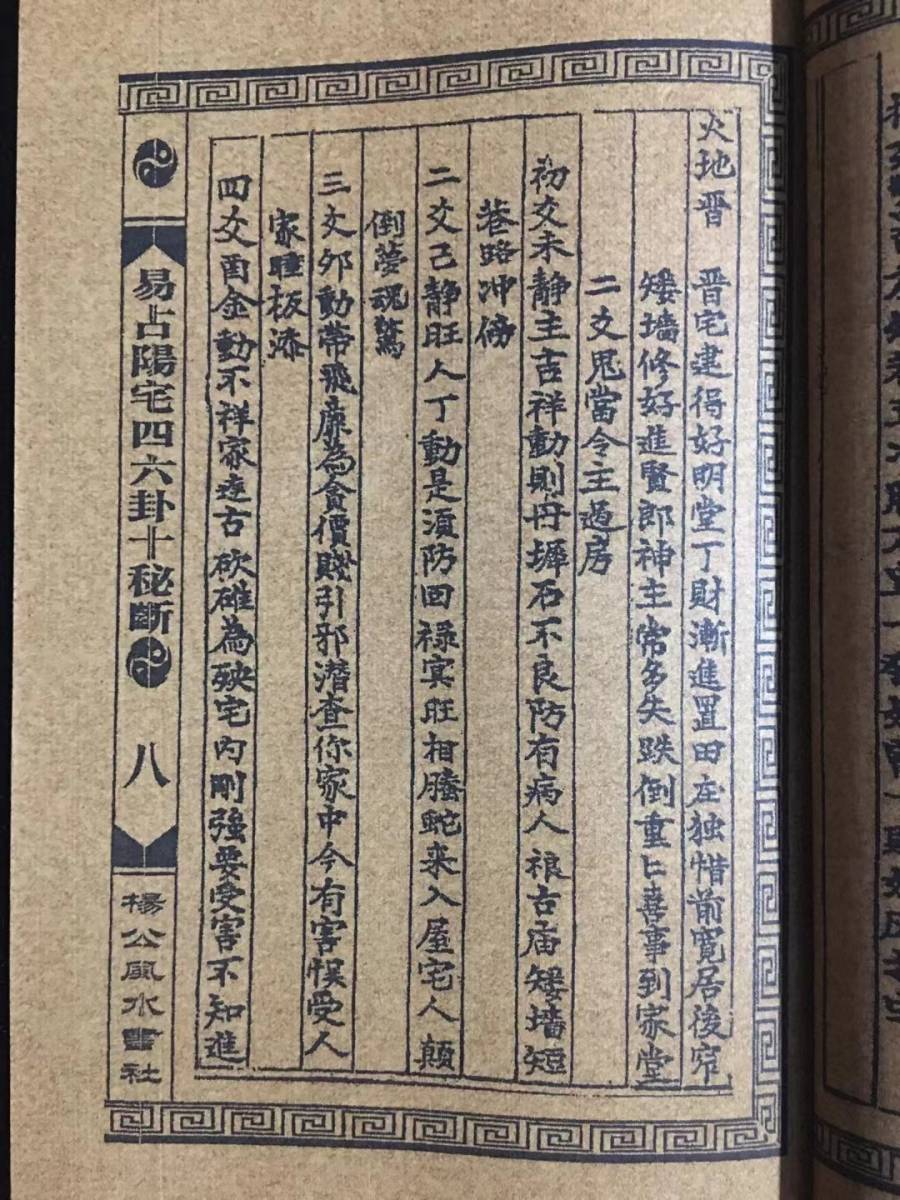 火地晋　晋宅建得好明堂丁財漸進置田庄独惜前寬居後窄
矮墙修好進賢郎神主常多失跌倒重匕喜事到家堂
二爻鬼當令主過房
初爻未静主吉祥動則丹墀石不良防有病人被古庙矮墙短
巷路冲傍
二爻己静旺人丁動是須防回禄㝠旺相螣蛇来入屋宅人顛
倒夢魂驚
三爻夘動帶飛廉為貪價賤引邪潛查你家中今有害悮受人
家睡板漆
四爻酉金動不祥家边古砍碓為殃宅内剛強要受害不知進
易占陽宅四六卦十秘斷
八
楊公風水書社